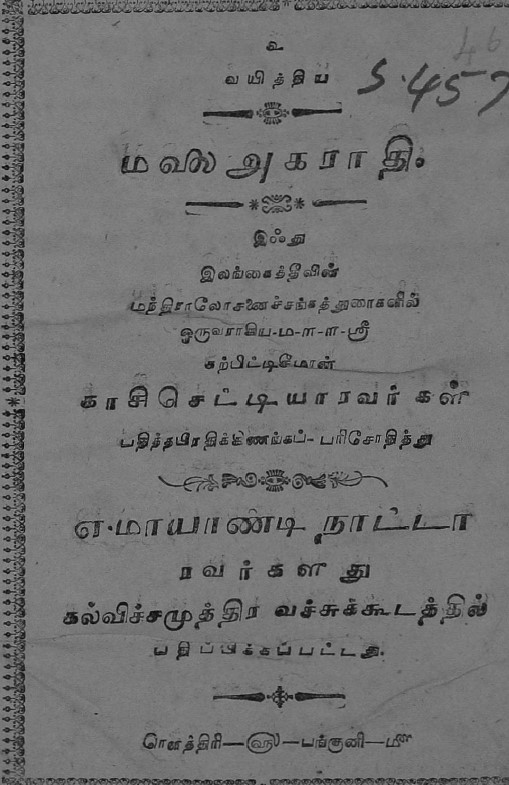 உ
வயித்திய
S. 457
மலை அகராதி.
இஃது
இலங்கைத்தீவின்
மந்திராலோசனைச்சங்கத்துரைகளில்
ஒருவராகிய-ம-ள-ள-ஸ்ரீ
கற்பிட்டிசீமோன்
காசிசெட்டியாரவர்கள்
பதித்தபிரதிக்கிணங்கப்- பரிசோதித்து
எ.மாயாண்டி நாட்டா
ரவர்களது
கல்விச்சமுத்திர வச்சுக்கூடத்தில்
பதிப்பிக்கப்பட்டது.
ரௌத்திரி—௵—பங்குனி—௴